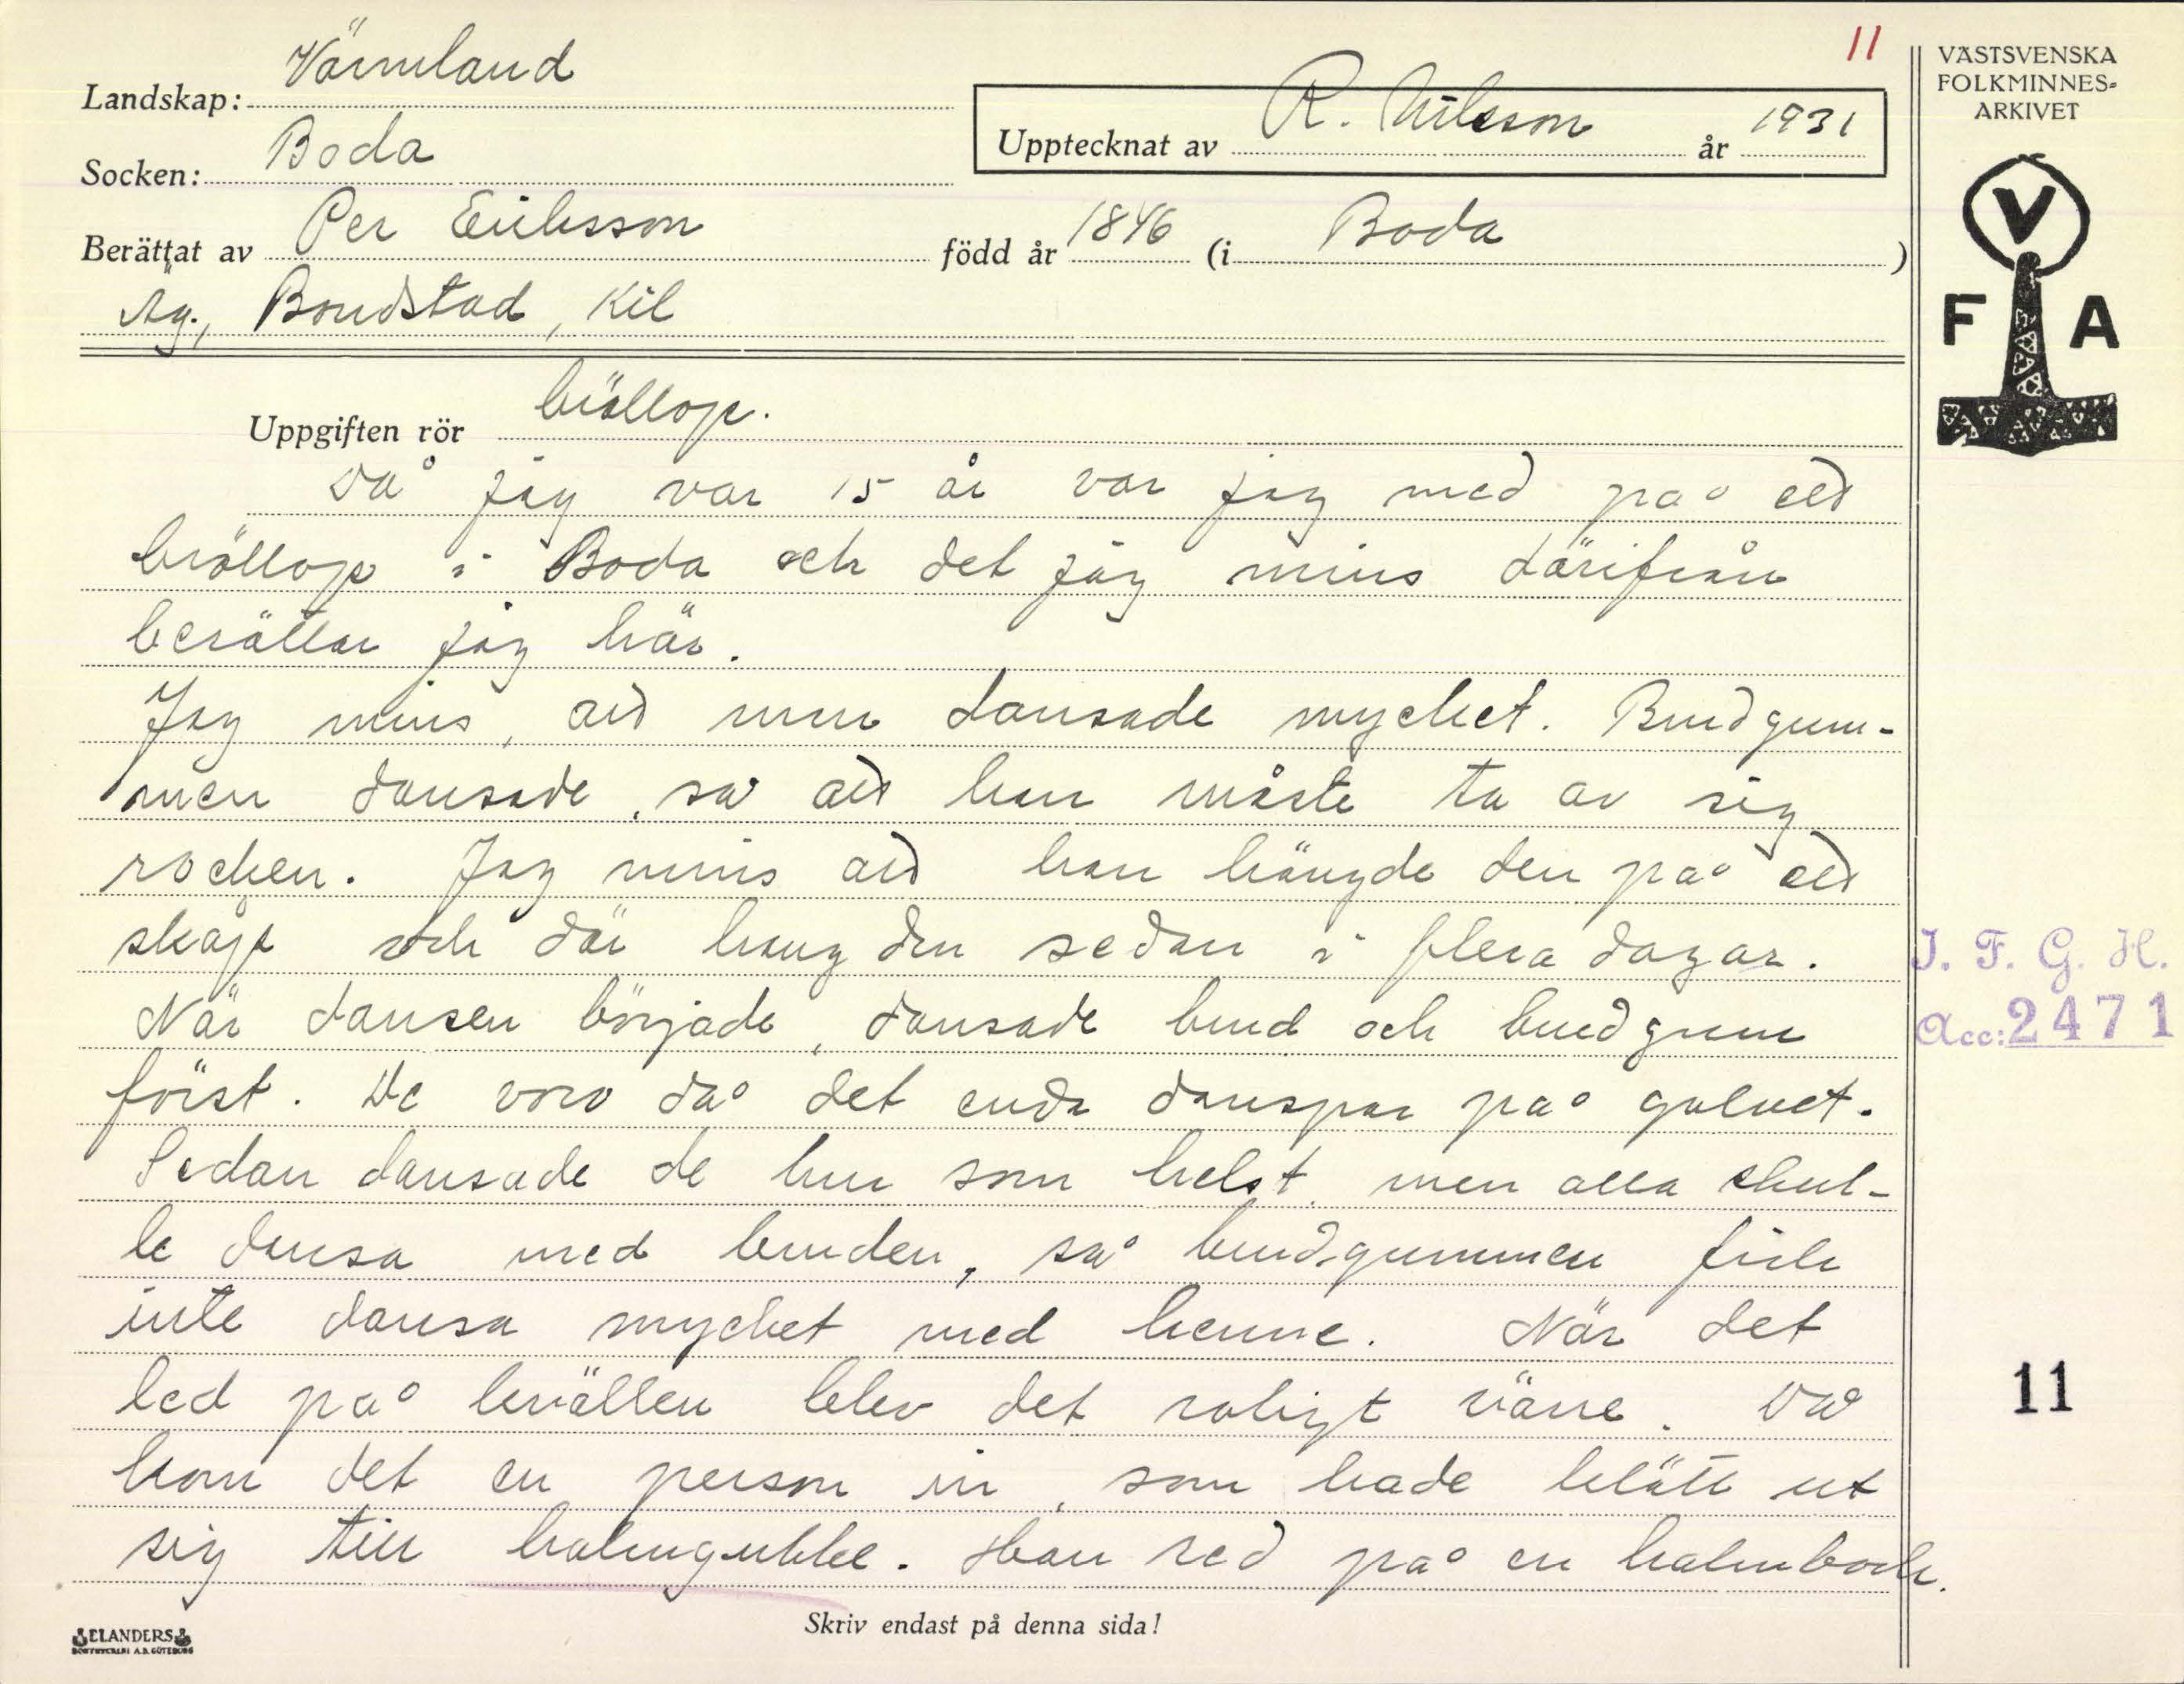 11
VÄSTSVENSKA
FOLKMINNES-
ARKIVET
Landskap: Värmland
Upptecknat av R. Nilsson år 1931
Socken: Boda
Berättat av Per Eriksson född år 1846 (i Boda)
Äg., Brudstad, Kil
V
F A
Uppgiften rör bröllop.
Då jag var 15 år var jag med på ett
bröllop i Boda och det jag mins därifrån
berättar jag här.
Jag mins, att man dansade mycket. Brudgum-
men dansade, så att han måste ta av sig
rocken. Jag mins att han hängde den på ett
skåp och där hang den sedan i flera dagar.
När dansen började, dansade brud och brudgum
först. De voro då det enda danspar på golvet.
Sedan dansade de hur som helst, men alla skul-
le dansa med bruden, så brudgummen fick
inte dansa mycket med henne. När det
led på kvällen blev det roligt värre. Då
kom det en person in, som hade klätt ut
sig till halmgubbe. Han red på en halmbock.
J. F. G. H.
Acc: 2471
11
Skriv endast på denna sida!
ELANDERS
BOKTRYCKERI A.B. GÖTEBORG